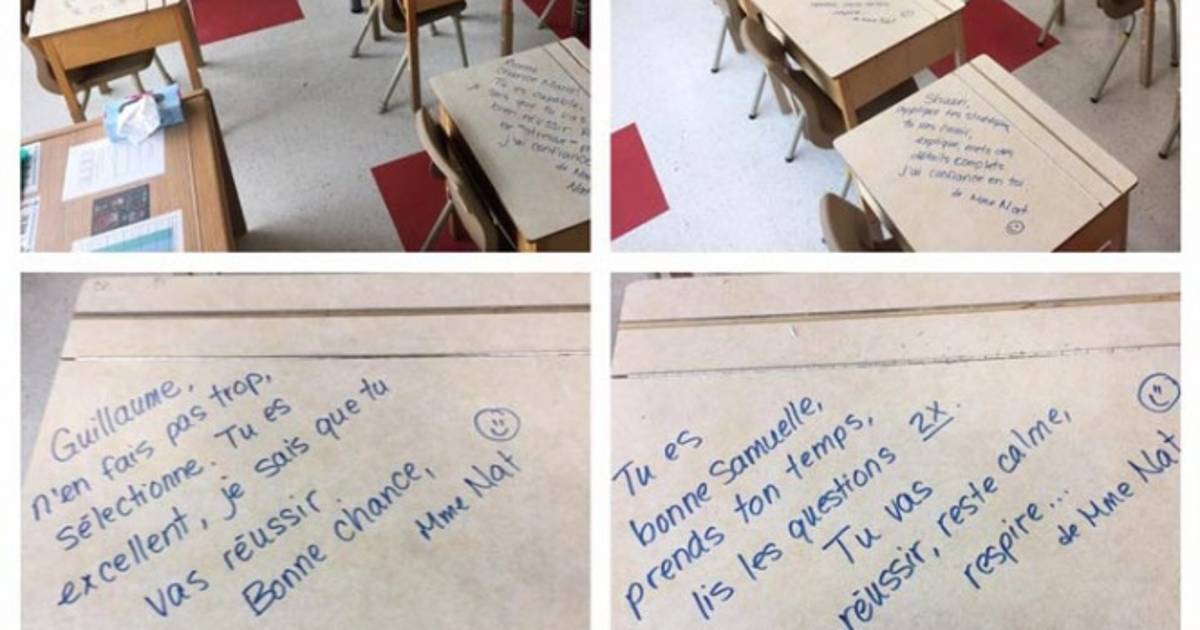 Tu es capable,
j'ai confiance
Shawn,
applique tes
explique, mets des
détails complets
J'ai confiance en toi
de Mme Nat
Guillaume,
n'en fais pas trop,
sélectionne. Tu es
excellent, je sais que tu
vas réussir
Bonne chance,
Mme Nat
Tu es
bonne Samuelle,
prends ton temps,
lis les questions 2X.
Tu vas
réussir, reste calme,
respire...
de Mme Nat